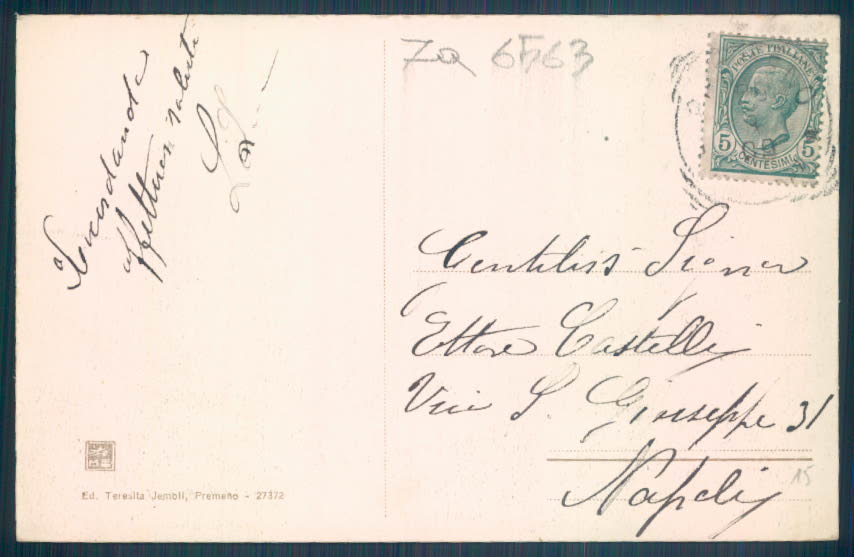 Ricordandola
affettuosi saluti
Za 6563
POSTE ITALIANE
5 5
CENTESIMI
Gentiliss Signor
Ettore Castelli
Via S. Giuseppe 31
Napoli
15
Ed. Teresita Jembli, Premeno - 27372